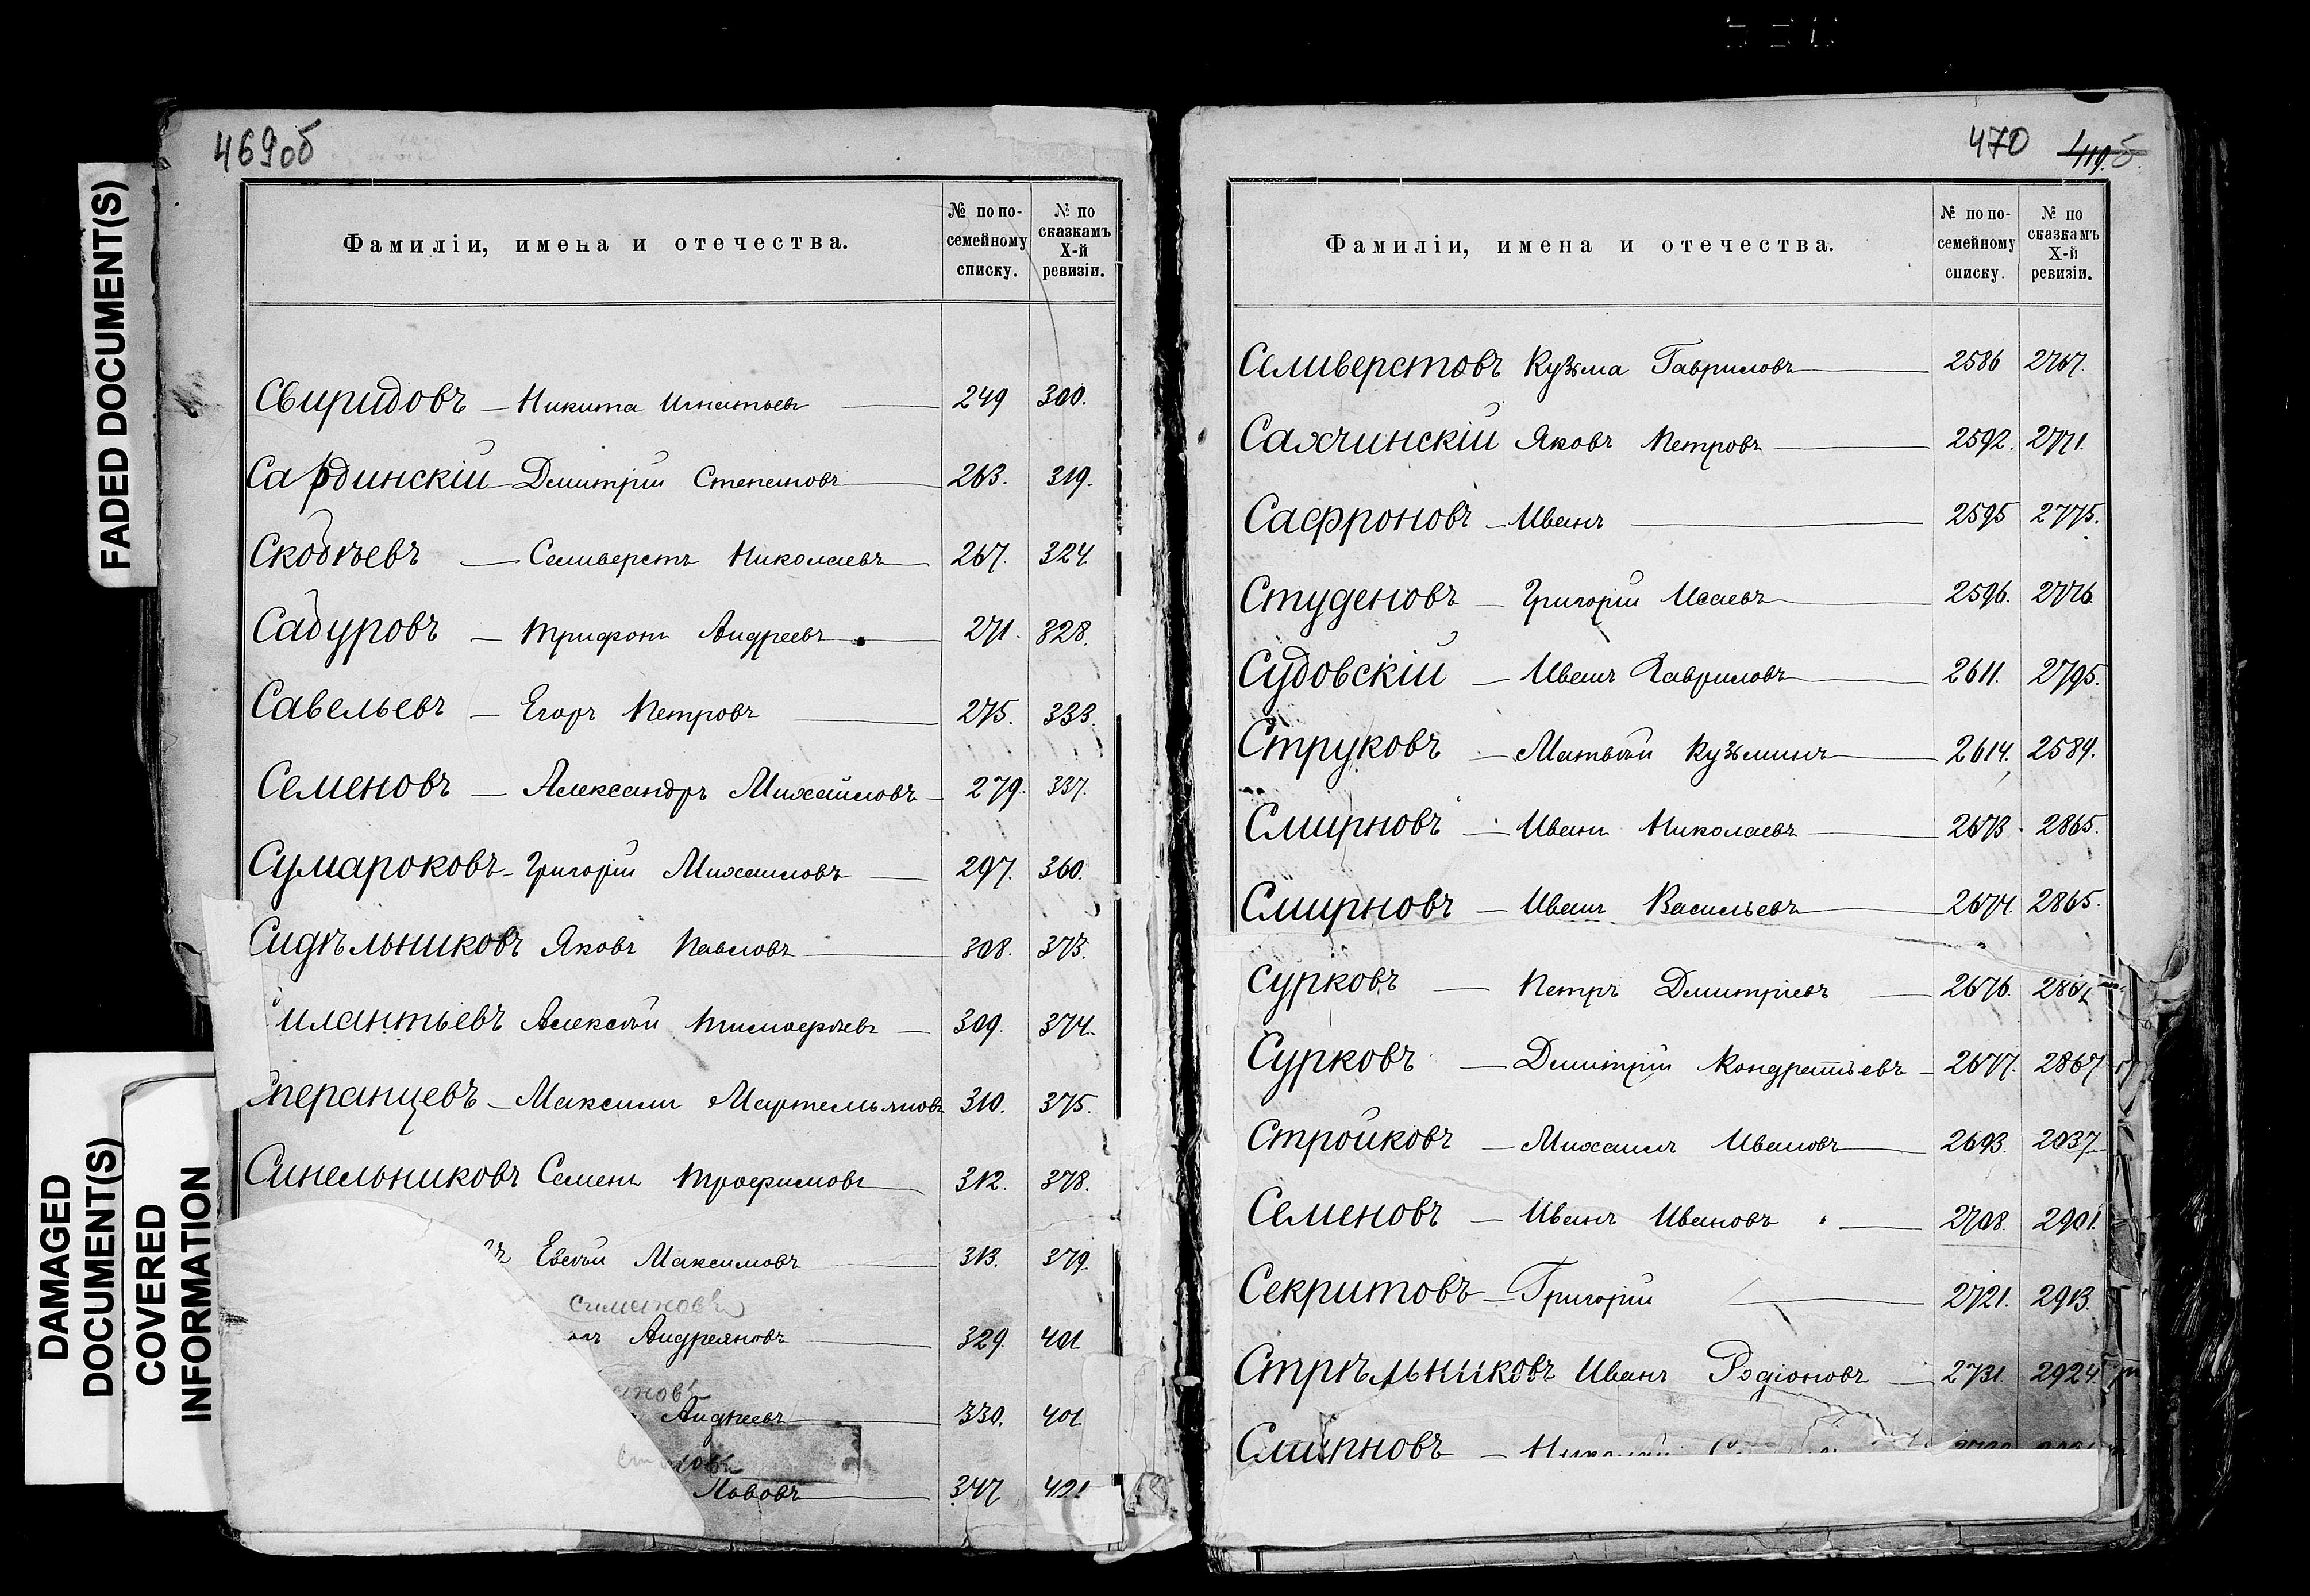 FADED DOCUMENT(S)
DAMAGED
DOCUMENT(S)
COVERED
INFORMATION
469об
Фамиліи, имена и отечества.
№ по по-
семейному
списку.
№ по
сказкамъ
X-й
ревизіи.
Свиридовъ — Никита Игнатьевъ — 249 300.
Сардинскій — Дмитрій Степановъ — 263. 319.
Скобѣевъ — Селиверстъ Николаевъ — 267. 324.
Сабуровъ — Трифонъ Андреевъ — 271. 328.
Савельевъ — Егоръ Петровъ — 275. 333.
Семеновъ — Александръ Михайловъ — 279. 337.
Сумароковъ — Григорій Михаиловъ — 297. 360.
Сидѣльниковъ Яковъ Павловъ — 308. 373.
илантьевъ Алексѣй Тимофѣевъ — 309. 374.
Сперанцевъ — Максимъ Мартемьяновъ 310. 375.
Синельниковъ Семенъ Трофимовъ — 312. 378.
въ Евсѣй Максимовъ — 313. 379.
симановъ
Андреяновъ — 329. 401
ановъ
Андреевъ — 330. 401
Львовъ — 347 421
470 419.б.
Фамиліи, имена и отечества.
№ по по-
семейному
списку.
№ по
сказкамъ
X-й
ревизіи.
Селиверстовъ Кузьма Гавриловъ — 2586 2767.
Салчинскій Яковъ Петровъ — 2592. 2771.
Сафроновъ — Иванъ — 2595 2775.
Студеновъ — Григорій Исаевъ — 2596. 2776
Судовскій — Иванъ Гавриловъ — 2611. 2795.
Струковъ — Матвѣй Кузьминъ — 2614. 2589.
Смирновъ — Иванъ Николаевъ — 2673. 2865.
Смирновъ — Иванъ Васильевъ — 2674. 2865.
Сурковъ — Петръ Дмитріевъ — 2676.
Сурковъ — Дмитрій Кондратьевъ — 2677. 2867
Стройковъ — Михаилъ Ивановъ — 2693. 2037
Семеновъ — Иванъ Ивановъ — 2708. 2901.
Секритовъ — Григорій — 2721. 2913.
Стрѣльниковъ Иванъ Родіоновъ — 2731. 2924
Смирновъ —